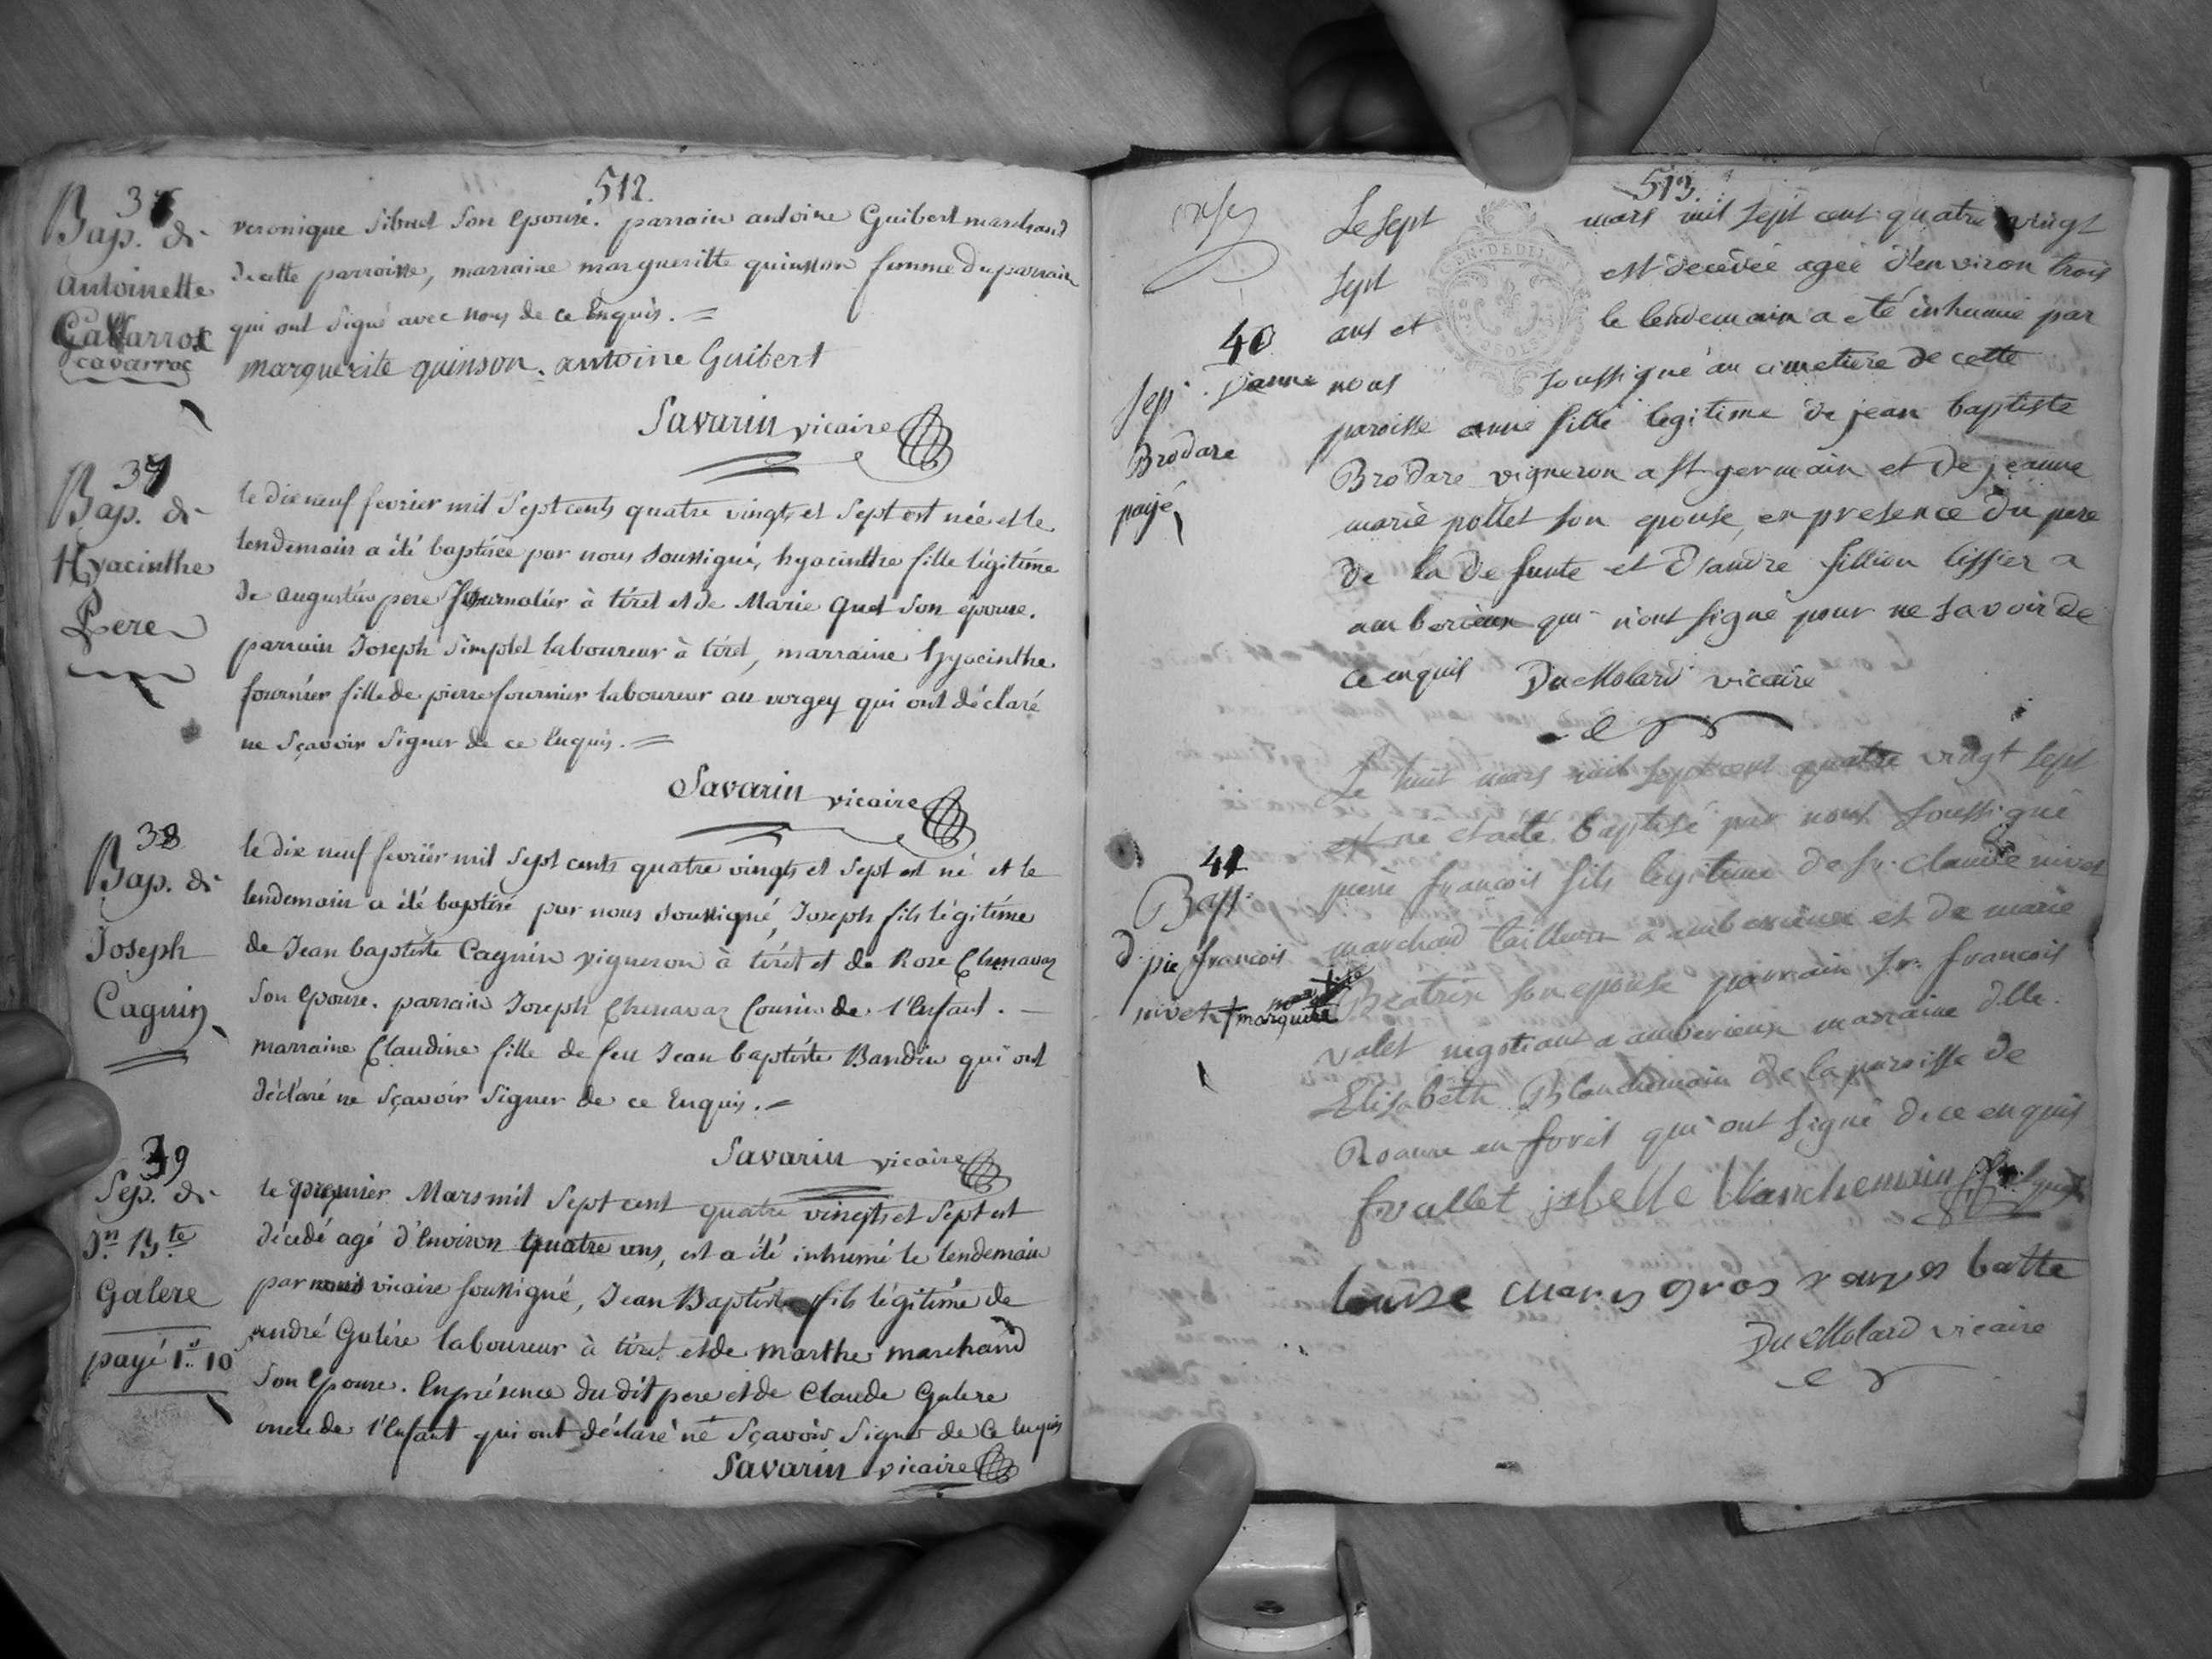 512.
36
Bap. de
Antoinette
Gavarrox
cavarroc
veronique Sibuet son epouse. parrain antoine Guibert marchand
de cette parroisse, marraine marguerite quinson femme du parrain
qui ont signé avec nous de ce Enquis. =
marguerite quinson. antoine Guibert
Savarin vicaire
37
Bap. de
Hyacinthe
Pere
le dixneuf fevrier mil sept cents quatre vingts et sept est née et le
lendemain a été baptisée par nous soussigné, hyacinthe fille légitime
de augustin pere journalier à tiret et de Marie Quet son épouse.
parrain Joseph Simplet laboureur à tiret, marraine hyacinthe
fournier fille de pierre fournier laboureur au vorgey qui ont déclaré
ne sçavoir signer de ce Enquis. =
Savarin vicaire
38
Bap. de
Joseph
Cagnin
le dix neuf fevrier mil sept cents quatre vingts et sept est né et le
lendemain a été baptisé par nous soussigné, Joseph fils légitime
de Jean baptiste Cagnin vigneron à tiret et de Rose Chenavaz
son Epouse. parrain Joseph Chenavaz Cousin de l'Enfant. -
marraine Claudine fille de feu Jean baptiste Bandin qui ont
déclaré ne sçavoir signer de ce Enquis. =
Savarin vicaire
39
Sep. de
Jn. Bte.
Galere
payé 1.. 10
le premier Mars mil sept cent quatre vingts et sept est
décédé agé d'Environ quatre ans, est a été inhumé le lendemain
par nous vicaire soussigné, Jean Baptiste fils légitime de
andré Galere laboureur à tiret et de marthe marchand
son Epouse. En présence du dit pere et de Claude Galere
oncle de l'Enfant qui ont déclaré ne sçavoir signer de Ce Enquis
Savarin vicaire
513.
40
Sep. d'anne
Brodare
payé
Le sept mars mil sept cent quatre vingt
sept est decedée agée d'environ trois
ans et le lendemain a eté inhumée par
nous soussigné au cimetiere de cette
paroisse anne fille legitime de jean baptiste
Brodare vigneron a st germain et de jeanne
marie pollet son epouse, en presence du pere
de la defunte et d'andre fillion tissier a
amberieux qui n'ont signé pour ne savoir de
ce enquis DuMolard vicaire
41
Bapt.
d. pie françois
nivet + marquete
Le huit mars mil sept cent quatre vingt sept
est né et a eté baptisé par nous soussigné
pierre françois fils legitime de sr. claude nivet
marchand tailleur a amberieux et de marie
Beatrix son epouse parrain sr. francois
valet negotiant a amberieux marraine dlle.
Elisabeth Blanchemain de la paroisse de
Roanne en forêt qui ont signé de ce enquis
fvallet jsbelle blanchemain
louise
DuMolard vicaire